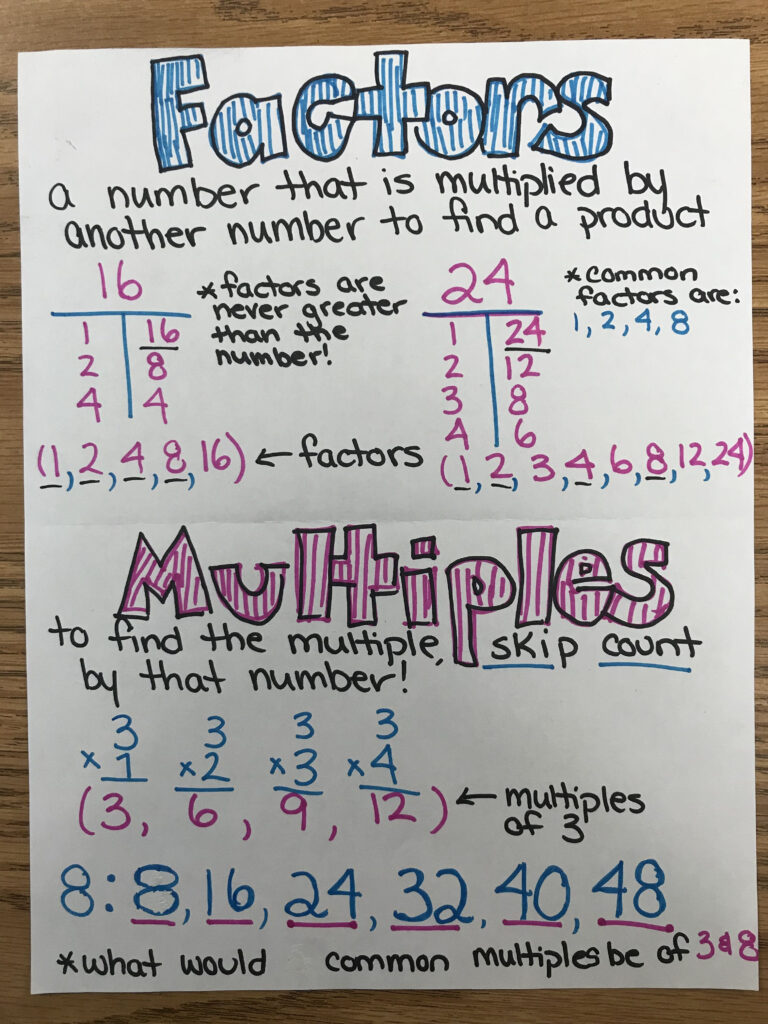 Factors
a number that is multiplied by
another number to find a product
16
1 16
2 8
4 4
*factors are
never greater
than the
number!
24
1 24
2 12
3 8
4 6
*common
factors are:
1, 2, 4, 8
(1, 2, 4, 8, 16) ← factors (1, 2, 3, 4, 6, 8, 12, 24)
Multiples
to find the multiple, skip count
by that number!
3 3 3 3
×1 ×2 ×3 ×4
(3, 6, 9, 12) ← multiples
of 3
8: 8, 16, 24, 32, 40, 48
*what would common multiples be of 3 & 8